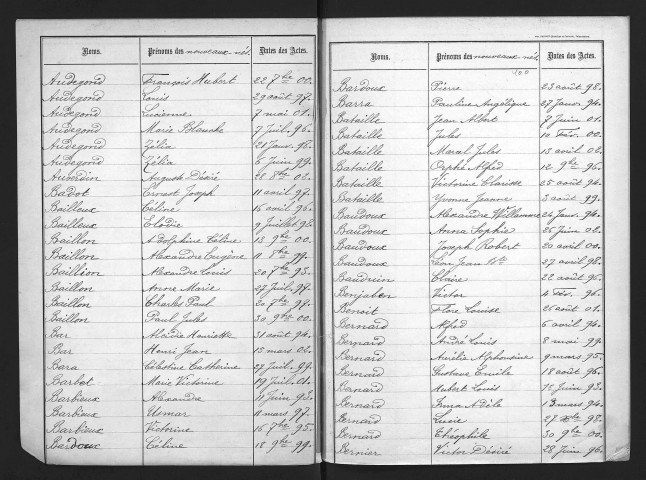 Noms. Prénoms des nouveaux-nés. Dates des Actes.
Audegond François Hubert 22 7bre 00.
Audegond Louis 29 août 97.
Audegond Lucienne 7 mai 01.
Audegond Marie Blanche 7 Juil. 96.
Audegond Zélia 21 Janv. 96.
Audegond Zélia 5 Juin 99.
Auverdin Auguste Désiré 28 8bre 02.
Badot Ernest Joseph 11 avril 97.
Bailleux Céline 16 avril 96.
Bailleux Elodie 9 Juillet 93.
Baillon Adolphine Céline 13 9bre 00.
Baillon Alexandre Eugène 11 8bre 99.
Baillion Alexandre Louis 20 7bre 93.
Baillon Anne Marie 27 Juil. 98.
Baillon Charles Paul 20 7bre 97.
Baillon Paul Jules 30 9bre 00.
Bar Alcide Henriette 31 août 94.
Bar Henri Jean 13 mars 02.
Bara Célestine Catherine 27 Juil. 99.
Barbet Marie Victorine 19 Juil. 01.
Barbieux Alexandre 11 Juin 93.
Barbieux Usmar 11 mars 97.
Barbieux Victorine 16 7bre 95.
Bardoux Céline 18 9bre 99.
Noms. Prénoms des nouveaux-nés. Dates des Actes.
Bardoux Pierre 23 août 98.
Barra Pauline Angélique 27 Janv. 94.
Bataille Jean Albert 7 Juin 01.
Bataille Jules 10 Fév. 00.
Bataille Marcel Jules 13 avril 02.
Bataille Orphé Alfred 12 9bre 95.
Bataille Victorine Clarisse 28 août 94.
Bataille Yvonne Jeanne 3 août 99.
Baudoux Alexandre Willemore 24 Janv. 94.
Baudoux Anna Sophie 25 Juin 02.
Baudoux Joseph Robert 20 avril 00.
Baudoux Léon Jean Bte 27 avril 98.
Baudrin Claire 22 août 95.
Benjaben Victor 4 Fév. 96.
Benoit Flore Louise 25 août 01.
Bernard Alfred 6 avril 94.
Bernard André Louis 8 mai 99.
Bernard Aurélie Alphonsine 9 mars 95.
Bernard Gustave Emile 18 août 96.
Bernard Hubert Louis 12 Juin 93.
Bernard Irma Adèle 13 mars 94.
Bernard Lucie 27 8bre 98.
Bernard Théophile 30 9bre 00.
Bernier Victor Désiré 28 Juin 96.